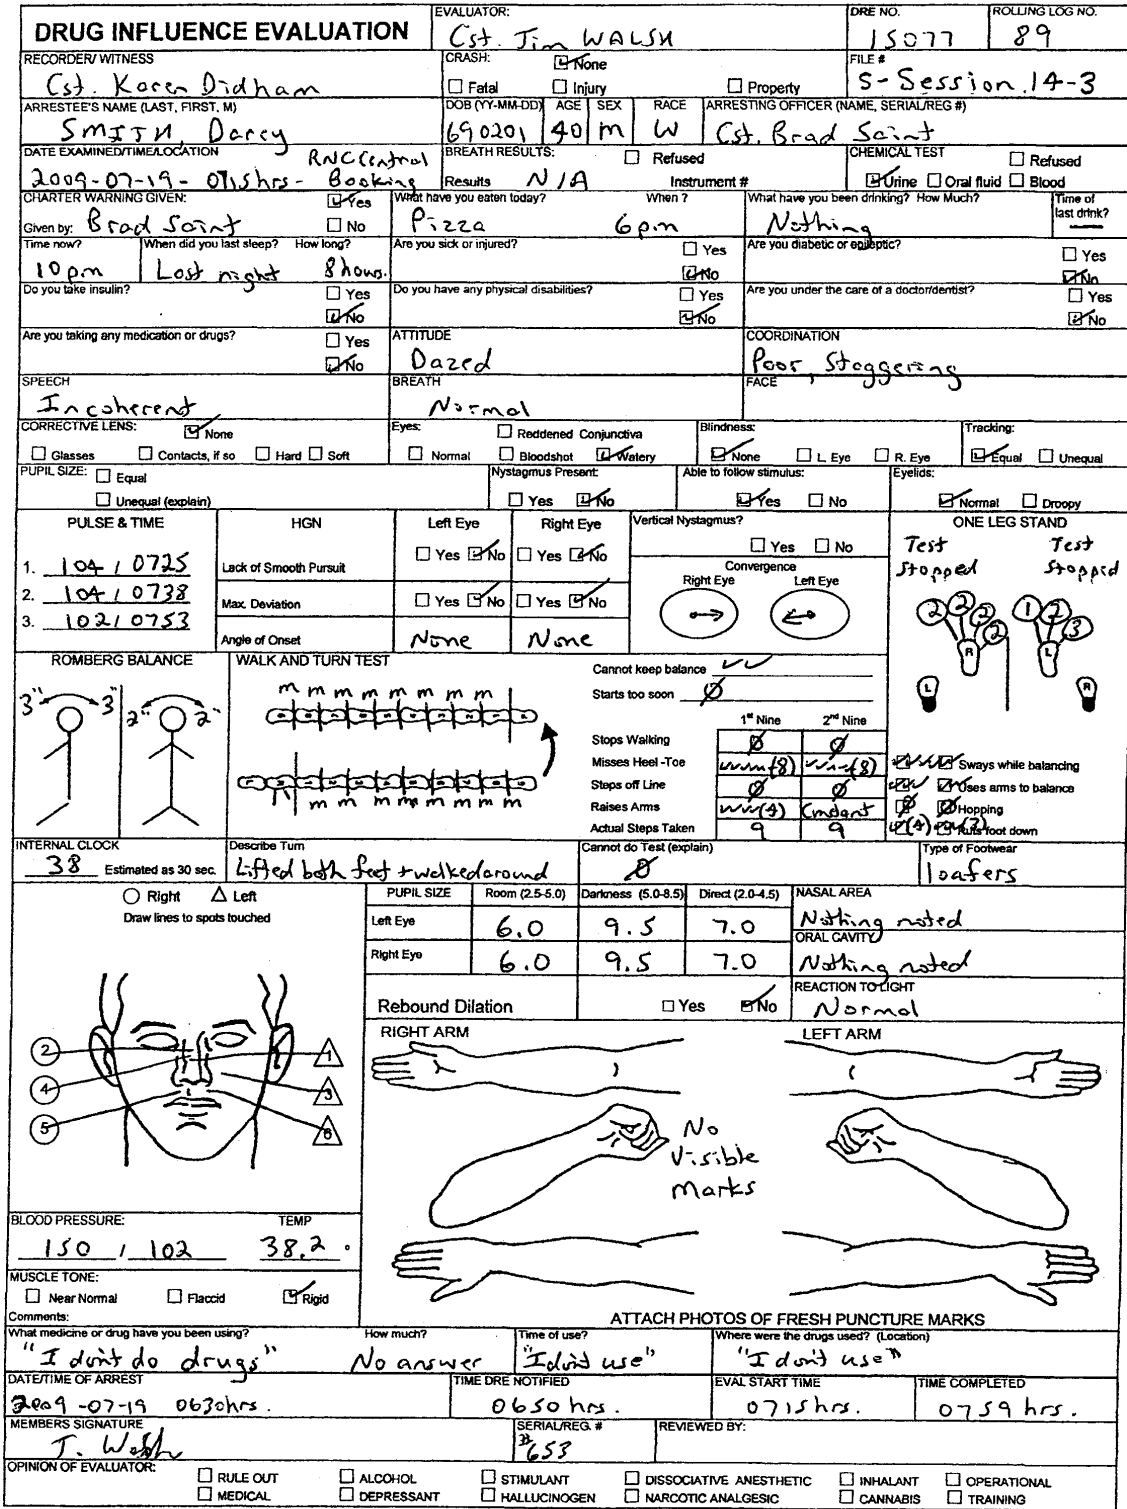 DRUG INFLUENCE EVALUATION
EVALUATOR: Cst. Jim WALSH
DRE NO. 15077
ROLLING LOG NO. 89
RECORDER/ WITNESS Cst. Karen Didham
CRASH: None Fatal Injury Property
FILE # S-Session.14-3
ARRESTEE'S NAME (LAST, FIRST, M) SMITH, Darcy
DOB (YY-MM-DD) 690201
AGE 40
SEX M
RACE W
ARRESTING OFFICER (NAME, SERIAL/REG #) Cst. Brad Saint
DATE EXAMINED/TIME/LOCATION RNC Central
2009-07-19 - 0715hrs - Booking
BREATH RESULTS: Refused
Results N/A Instrument #
CHEMICAL TEST Refused
Urine Oral fluid Blood
CHARTER WARNING GIVEN: Yes
Given by: Brad Saint No
What have you eaten today? When ?
Pizza 6pm
What have you been drinking? How Much?
Nothing
Time of last drink? —
Time now? 10pm
When did you last sleep? How long?
Last night 8 hours.
Are you sick or injured? Yes No
Are you diabetic or epileptic? Yes No
Do you take insulin? Yes No
Do you have any physical disabilities? Yes No
Are you under the care of a doctor/dentist? Yes No
Are you taking any medication or drugs? Yes No
ATTITUDE Dazed
COORDINATION Poor, Staggering
SPEECH Incoherent
BREATH Normal
FACE
CORRECTIVE LENS: None
Glasses Contacts, if so Hard Soft
Eyes: Reddened Conjunctiva
Normal Bloodshot Watery
Blindness: None L. Eye R. Eye
Tracking: Equal Unequal
PUPIL SIZE: Equal
Unequal (explain)
Nystagmus Present: Yes No
Able to follow stimulus: Yes No
Eyelids: Normal Droopy
PULSE & TIME
1. 104 / 0725
2. 104 / 0738
3. 102 / 0753
HGN Left Eye Right Eye
Lack of Smooth Pursuit Yes No Yes No
Max. Deviation Yes No Yes No
Angle of Onset None None
Vertical Nystagmus? Yes No
Convergence
Right Eye Left Eye
ONE LEG STAND
Test Stopped Test Stopped
2 2 2 2 1 2 3
R L
L R
ROMBERG BALANCE
3" 3" 2" 2"
WALK AND TURN TEST
m m m m m m m m
m m m m m m m m
Cannot keep balance
Starts too soon Ø
1st Nine 2nd Nine
Stops Walking Ø Ø
Misses Heel -Toe (8) (8)
Steps off Line Ø Ø
Raises Arms (4) Constant
Actual Steps Taken 9 9
Sways while balancing
Uses arms to balance
Ø Ø Hopping
(4) (3) Puts foot down
INTERNAL CLOCK
38 Estimated as 30 sec.
Describe Turn
Lifted both feet + walked around
Cannot do Test (explain)
Ø
Type of Footwear
loafers
Right Left
Draw lines to spots touched
2 1
4 3
5 6
PUPIL SIZE Room (2.5-5.0) Darkness (5.0-8.5) Direct (2.0-4.5)
Left Eye 6.0 9.5 7.0
Right Eye 6.0 9.5 7.0
NASAL AREA
Nothing noted
ORAL CAVITY
Nothing noted
Rebound Dilation Yes No
REACTION TO LIGHT
Normal
RIGHT ARM LEFT ARM
No
Visible
Marks
BLOOD PRESSURE: TEMP
150 / 102 38.2
MUSCLE TONE:
Near Normal Flaccid Rigid
Comments:
ATTACH PHOTOS OF FRESH PUNCTURE MARKS
What medicine or drug have you been using? How much?
"I don't do drugs" No answer
Time of use?
"I don't use"
Where were the drugs used? (Location)
"I don't use"
DATE/TIME OF ARREST
2009-07-19 0630hrs.
TIME DRE NOTIFIED
0650 hrs.
EVAL START TIME
0715hrs.
TIME COMPLETED
0759 hrs.
MEMBERS SIGNATURE
SERIAL/REG. #
#653
REVIEWED BY:
OPINION OF EVALUATOR:
RULE OUT ALCOHOL STIMULANT DISSOCIATIVE ANESTHETIC INHALANT OPERATIONAL
MEDICAL DEPRESSANT HALLUCINOGEN NARCOTIC ANALGESIC CANNABIS TRAINING